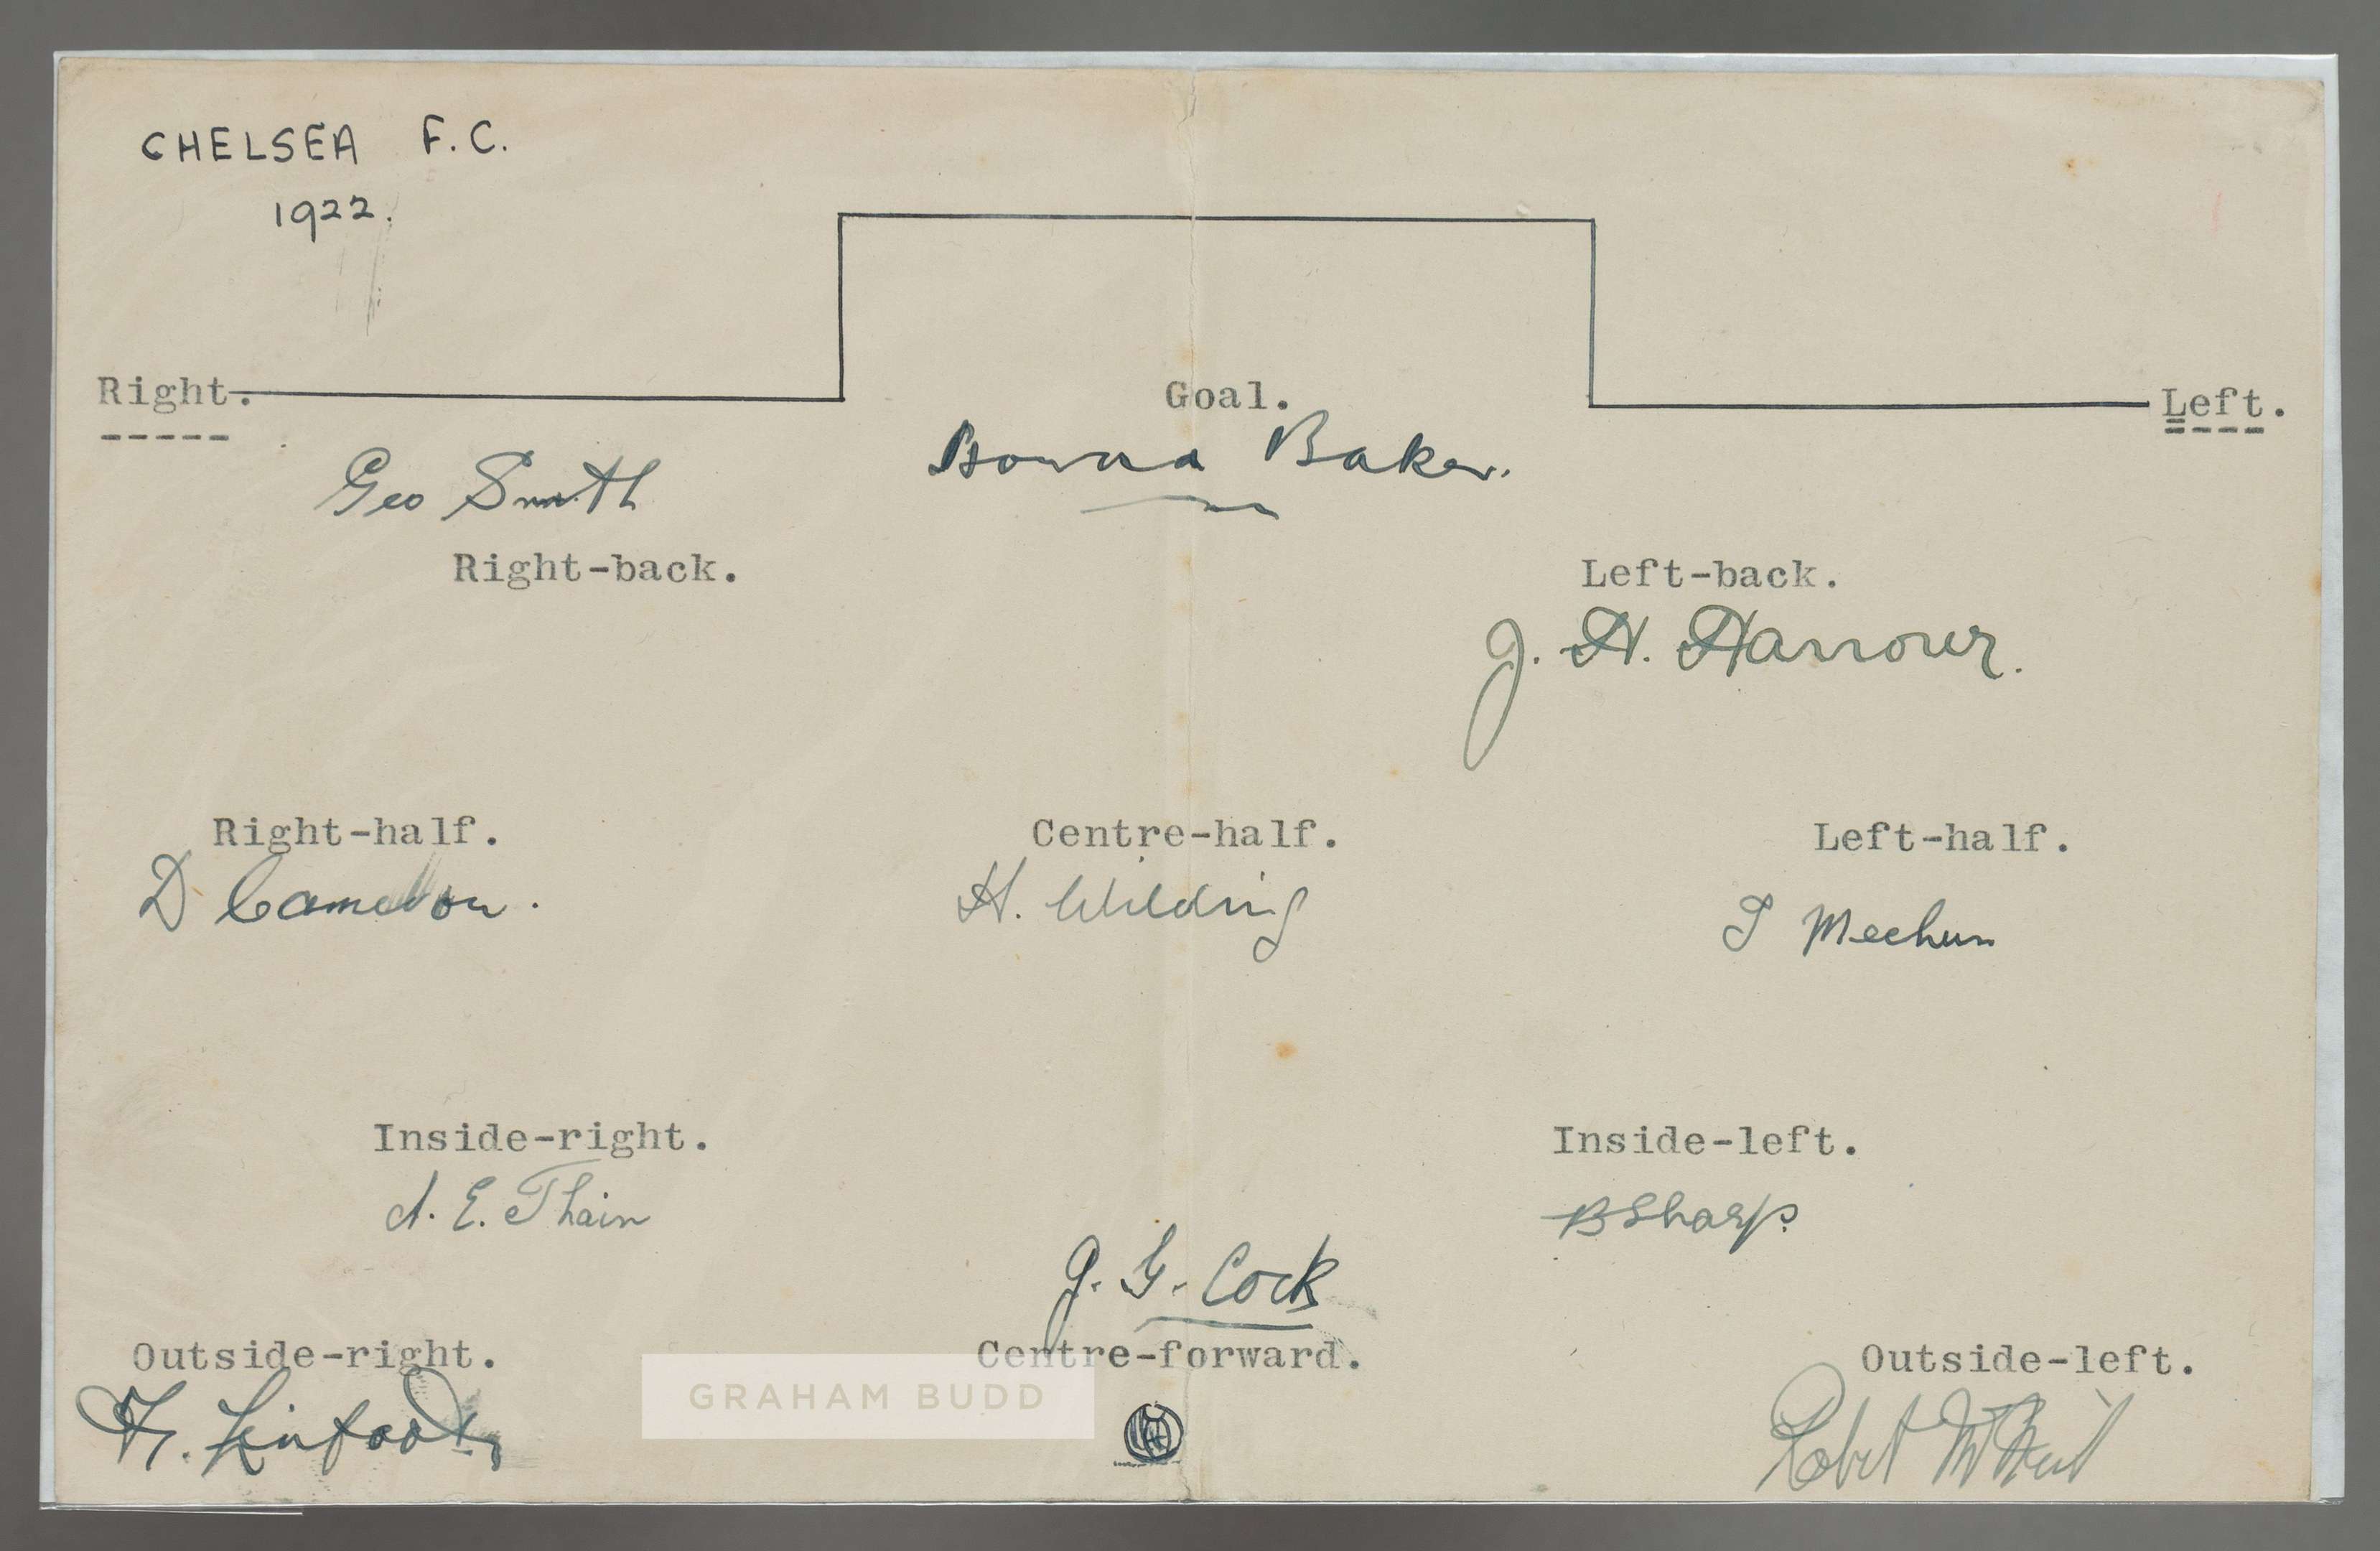 CHELSEA F.C.
1922.
Right. Goal. Left.
Geo Smith
Howard Baker.
Right-back. Left-back.
J. H. Harrower.
Right-half. Centre-half. Left-half.
D Cameron. H. Wilding T Meehan
Inside-right. Inside-left.
A. E. Thain B Sharp.
J. G. Cock
Outside-right. Centre-forward. Outside-left.
GRAHAM BUDD
H. Linfoot Robert McNeil